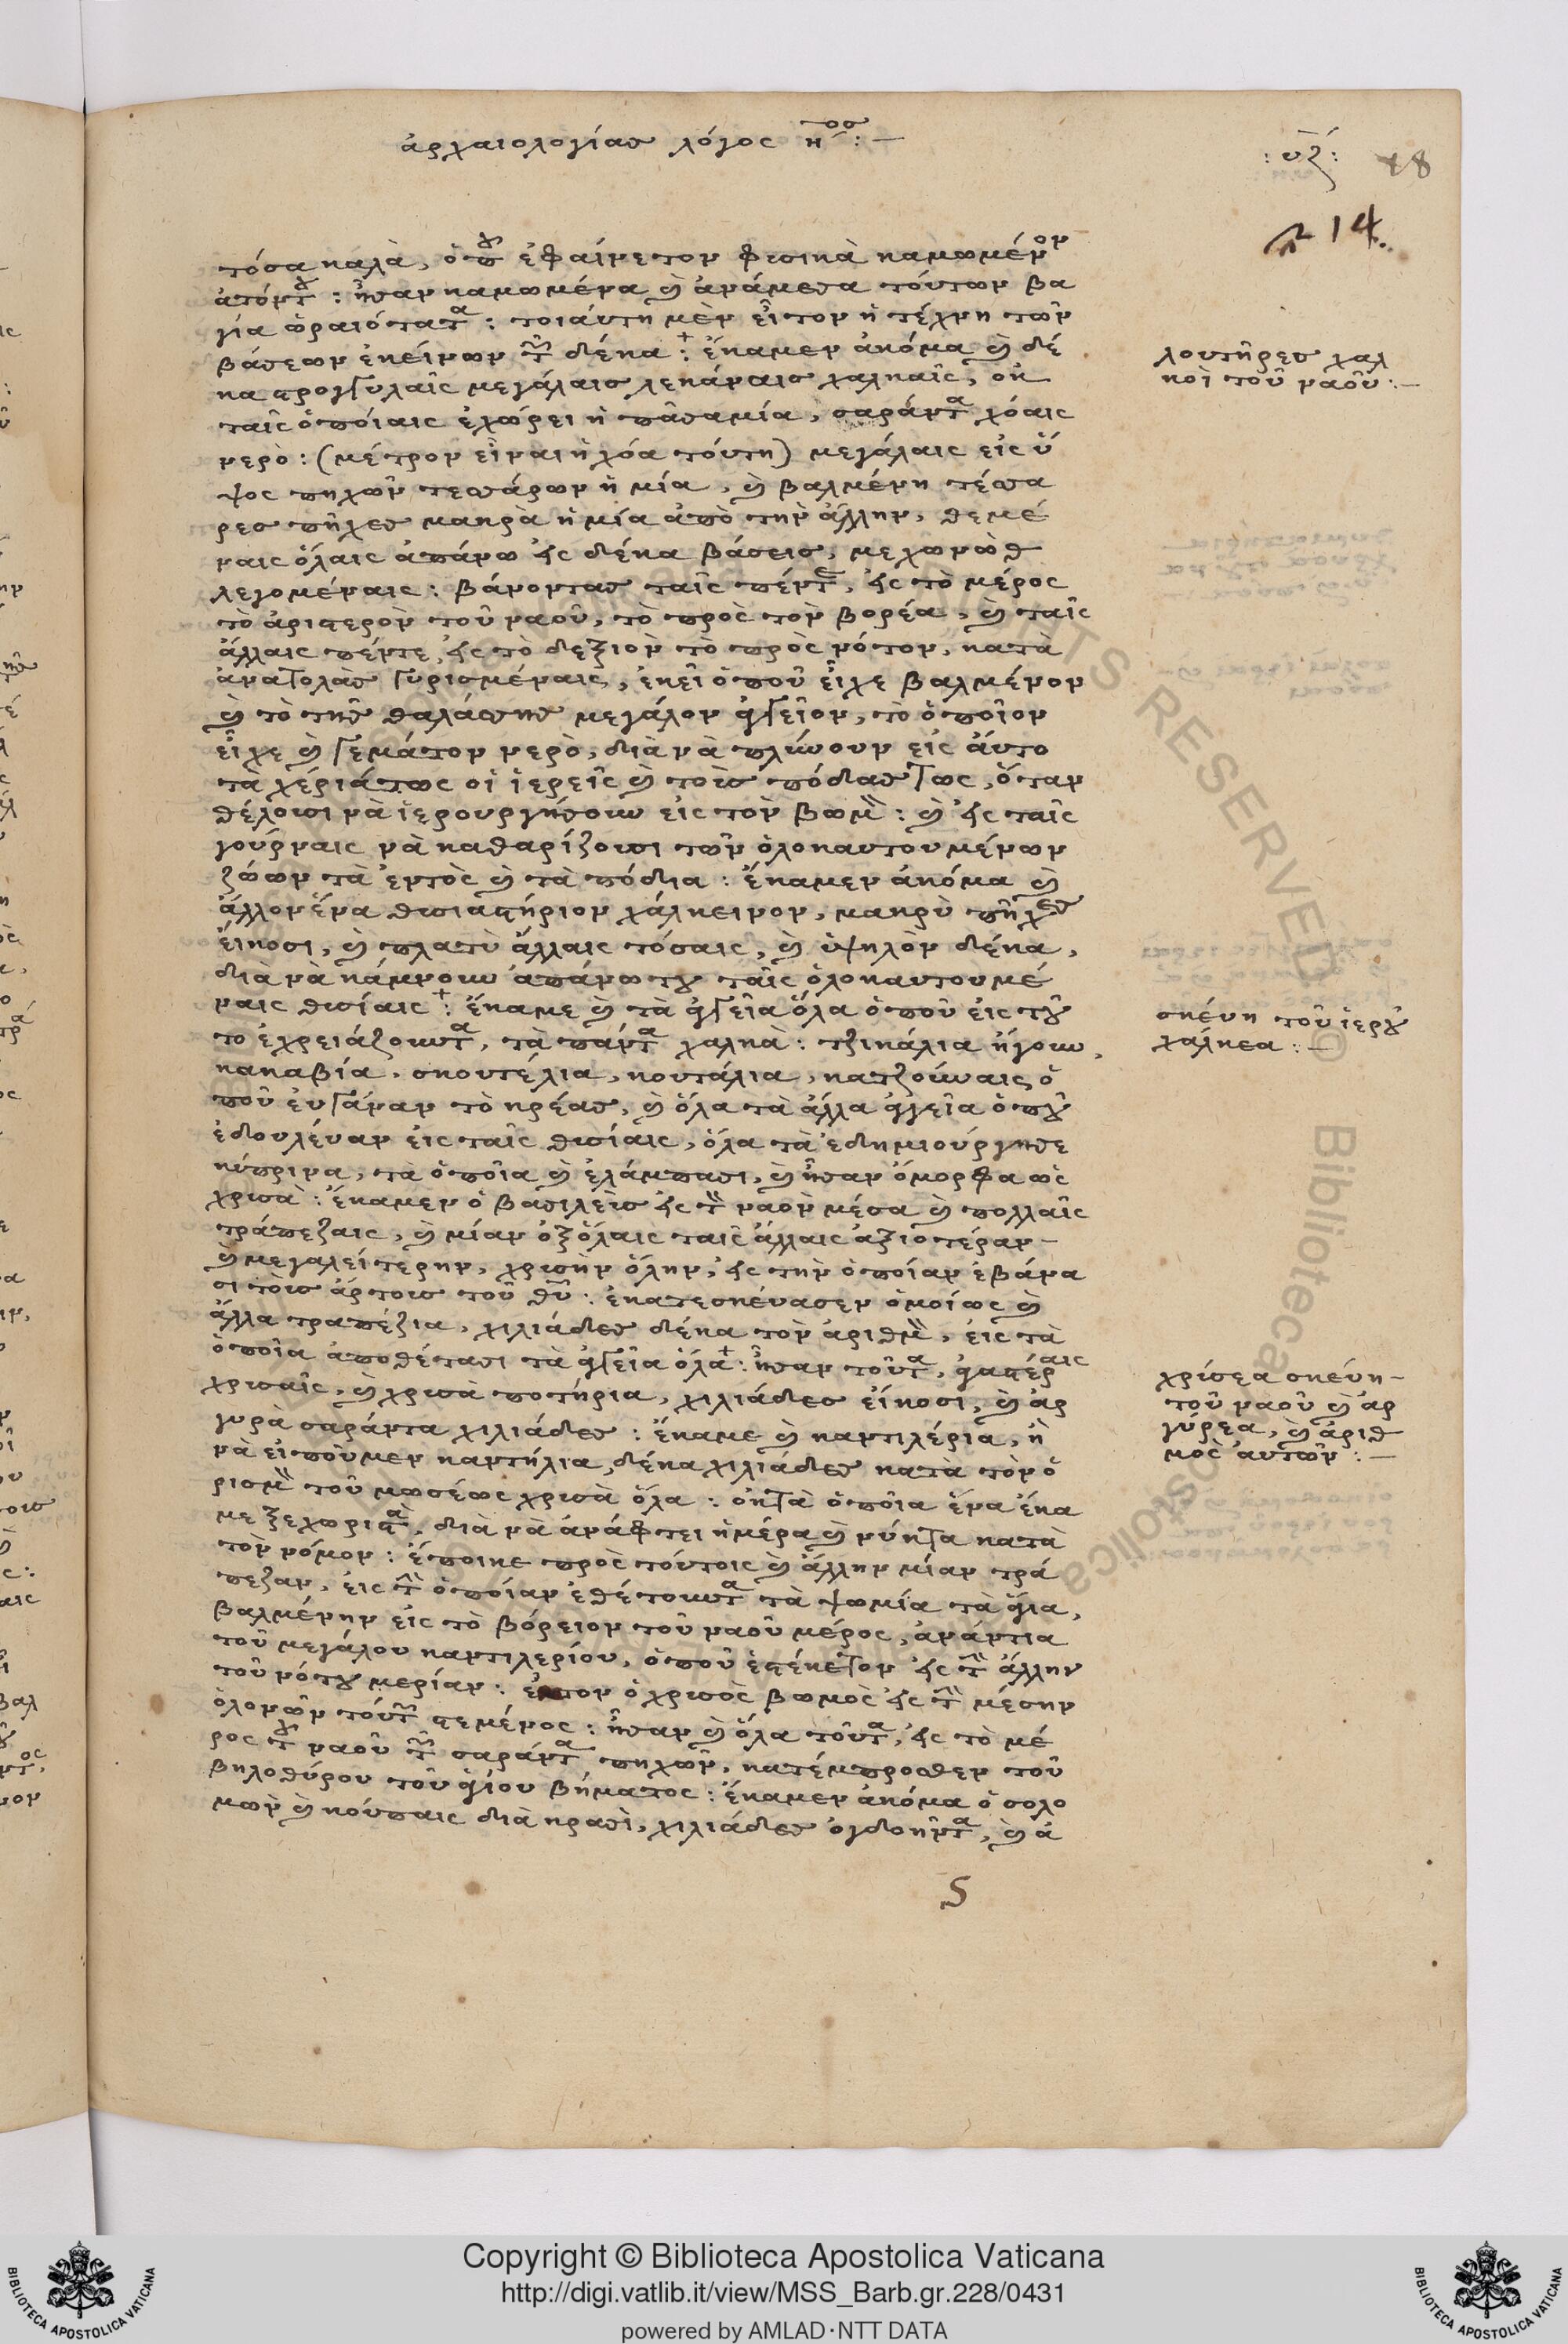 ἀρχαιολογίας λόγος η^ος : —
: υζ : 48
14.
τόσα καλὰ, ὁποῦ ἐφαίνετον φυσικὰ καμωμένον
ἀπόντου : ἦσαν καμωμένα καὶ ἀνάμεσα τούτων βα
γία ὡραιότατα : τοιαύτη μὲν εἶτον ἡ τέχνη τῶν
βάσεων ἐκείνων τῶν δέκα : ἔκαμεν ἀκόμα καὶ δέ
κα στρογγυλαῖς μεγάλαις λεκάναις χαλκαῖς, ὀκ
ταῖς ὁποίαις ἐχώρει ἡ πᾶσαμία, σαράντα χόαις
νερὸ : (μέτρον εἶναι ἡ χόα τούτη) μεγάλαις εἰς ὕ
ψος πηχῶν τεσσάρων ἡ μία, καὶ βαλμένη τέσσα
ρες πῆχες μακρὰ ἡ μία ἀπὸ τὴν ἄλλην, θεμέ
ναις ὅλαις ἀπάνω εἰς δέκα βάσεις, μεχωνὼθ
λεγομέναις : βάνοντας ταῖς πέντε, εἰς τὸ μέρος
τὸ ἀριστερὸν τοῦ ναοῦ, τὸ πρὸς τὸν βορέα, καὶ ταῖς
ἄλλαις πέντε εἰς τὸ δεξιὸν τὸ πρὸς νότον, κατὰ
ἀνατολὰς γυρισμέναις, ἐκεῖ ὁποῦ εἶχε βαλμένον
καὶ τὸ τῆς θαλάσσης μεγάλον ἀγγεῖον, τὸ ὁποῖον
εἶχε καὶ γεμάτον νερὸ, διὰ νὰ πλύνουν εἰς ἄυτο
τὰ χέριάτως οἱ ἱερεῖς καὶ τοὺς πόδας τως, ὅταν
θέλουσι νὰ ἱερουργήσουν εἰς τὸν βωμὸν : καὶ εἰς ταῖς
γούρναις νὰ καθαρίζουσι τῶν ὁλοκαυτουμένων
ζώων τὰ ἐντὸς καὶ τὰ πόδια : ἔκαμεν ἀκόμα καὶ
ἄλλον ἕνα θυσιαστήριον χάλκεινον, μακρὺ πῆχες
εἴκοσι, καὶ πλατὺ ἄλλαις τόσαις, καὶ ὑψηλὸν δέκα,
διὰ νὰ κάμνουν ἀπάνω του ταῖς ὁλοκαυτουμέ
ναις θυσίαις : ἔκαμε καὶ τὰ ἀγγεῖα ὅλα ὁποῦ εἰς τοῦ
το ἐχρειάζουντα, τὰ πάντα χαλκὰ : τζικάλια ἤγουν
κακαβία, σκουτέλια, κουτάλια, κατζούναις ὁ
ποῦ ἐυγάναν τὸ κρέας, καὶ ὅλα τὰ ἄλλα ἀγγεῖα ὁποῦ
ἐδουλέυαν εἰς ταῖς θυσίαις, ὅλα τὰ ἐδημιούργησε
κύπρινα, τὰ ὁποῖα καὶ ἐλάμπασι, καὶ ἦσαν ὄμορφα ὡς
χρυσὰ : ἔκαμεν ὁ βασιλεὺς εἰς τὸν ναὸν μέσα καὶ πολλαῖς
τράπεζαις, καὶ μίαν ὀξ ὅλαις ταῖς ἄλλαις ἀξιοτέραν
καὶ μεγαλείτερην, χρυσὴν ὅλην, εἰς τὴν ὁποίαν ἐβάνα
σι τοὺς ἄρτους τοῦ θῦ : ἐκατεσκέυασεν ὁμοίως καὶ
ἄλλα τραπέζια, χιλιάδες δέκα τὸν ἀριθμὸν, εἰς τὰ
ὁποῖα ἀποθέτασι τὰ ἀγγεῖα ὅλα : ἦσαν τοῦτα, ἀγαστέραις
χρυσαῖς, καὶ χρυσὰ ποτήρια, χιλιάδες εἴκοσι, καὶ ἀρ
γυρὰ σαράντα χιλιάδες : ἔκαμε καὶ καντιλέρια, ἢ
νὰ εἰποῦμεν καντήλια, δέκα χιλιάδες κατὰ τὸν ὁ
ρισμὸν τοῦ μωσέως χρυσὰ ὅλα : ὀκτὰ ὁποῖα ἕνα ἔκα
με ξεχωριστὰ, διὰ νὰ ἀνάφτει ἡμέρα καὶ νύκτα κατὰ
τὸν νόμον : ἔποικε πρὸς τούτοις καὶ ἄλλην μίαν τρά
πεζαν, εἰς τὴν ὁποίαν ἐθέτουντα τὰ ψωμία τὰ ἅγια,
βαλμένην εἰς τὸ βόρειον τοῦ ναοῦ μέρος, ἀνάντια
τοῦ μεγάλου καντιλερίου, ὁποῦ ἐστέκετον εἰς τὴν ἄλλην
τοῦ νότου μερίαν : εἶτον ὁ χρυσὸς βωμὸς εἰς τὴν μέσην
ὁλονῶν τούτων στεμένος : ἦσαν καὶ ὅλα τοῦτα, εἰς τὸ μέ
ρος τοῦ ναοῦ τῶν σαράντα πηχῶν, κατέμπροσθεν τοῦ
βηλοθύρου τοῦ ἁγίου βήματος : ἔκαμεν ἀκόμα ὁ σολο
μὼν καὶ κούπαις διὰ κρασὶ, χιλιάδες ὀγδοῆντα, καὶ ἀ
λουτῆρες χαλ
κοὶ τοῦ ναοῦ : —
σκέυη τοῦ ἱεροῦ
χάλκεα : —
χρύσεα σκέυη
τοῦ ναοῦ καὶ ἀρ
γύρεα, καὶ ἀριθ
μὸς αὐτῶν : —
S
BIBLIOTECA APOSTOLICA VATICANA
Copyright © Biblioteca Apostolica Vaticana
http://digi.vatlib.it/view/MSS_Barb.gr.228/0431
powered by AMLAD·NTT DATA
BIBLIOTECA APOSTOLICA VATICANA